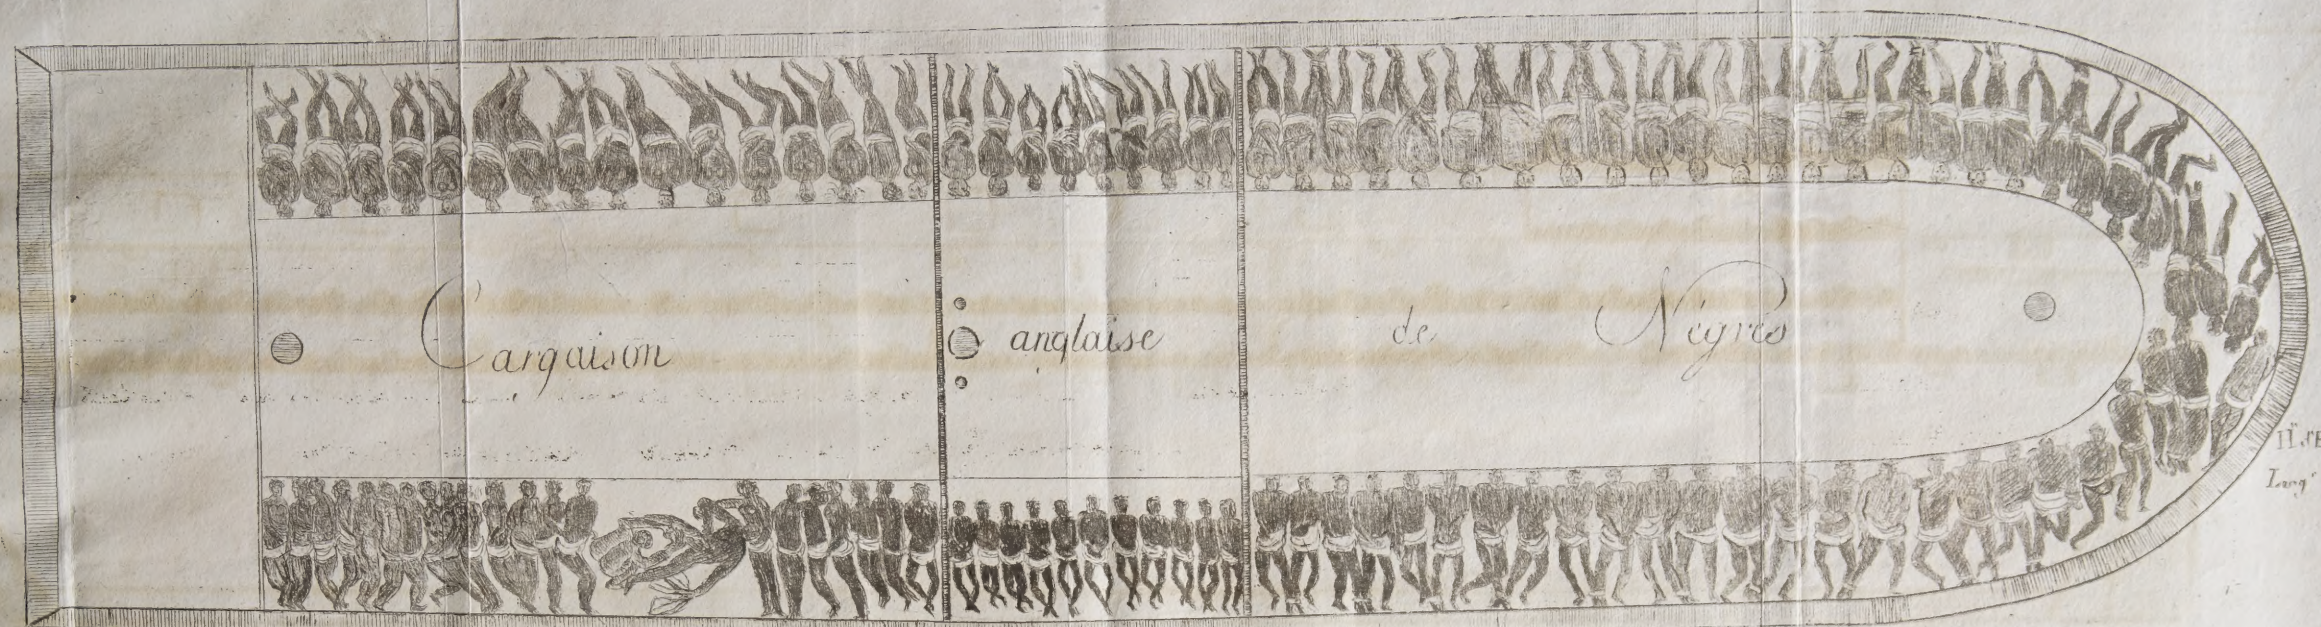 Cargaison anglaise de Négres